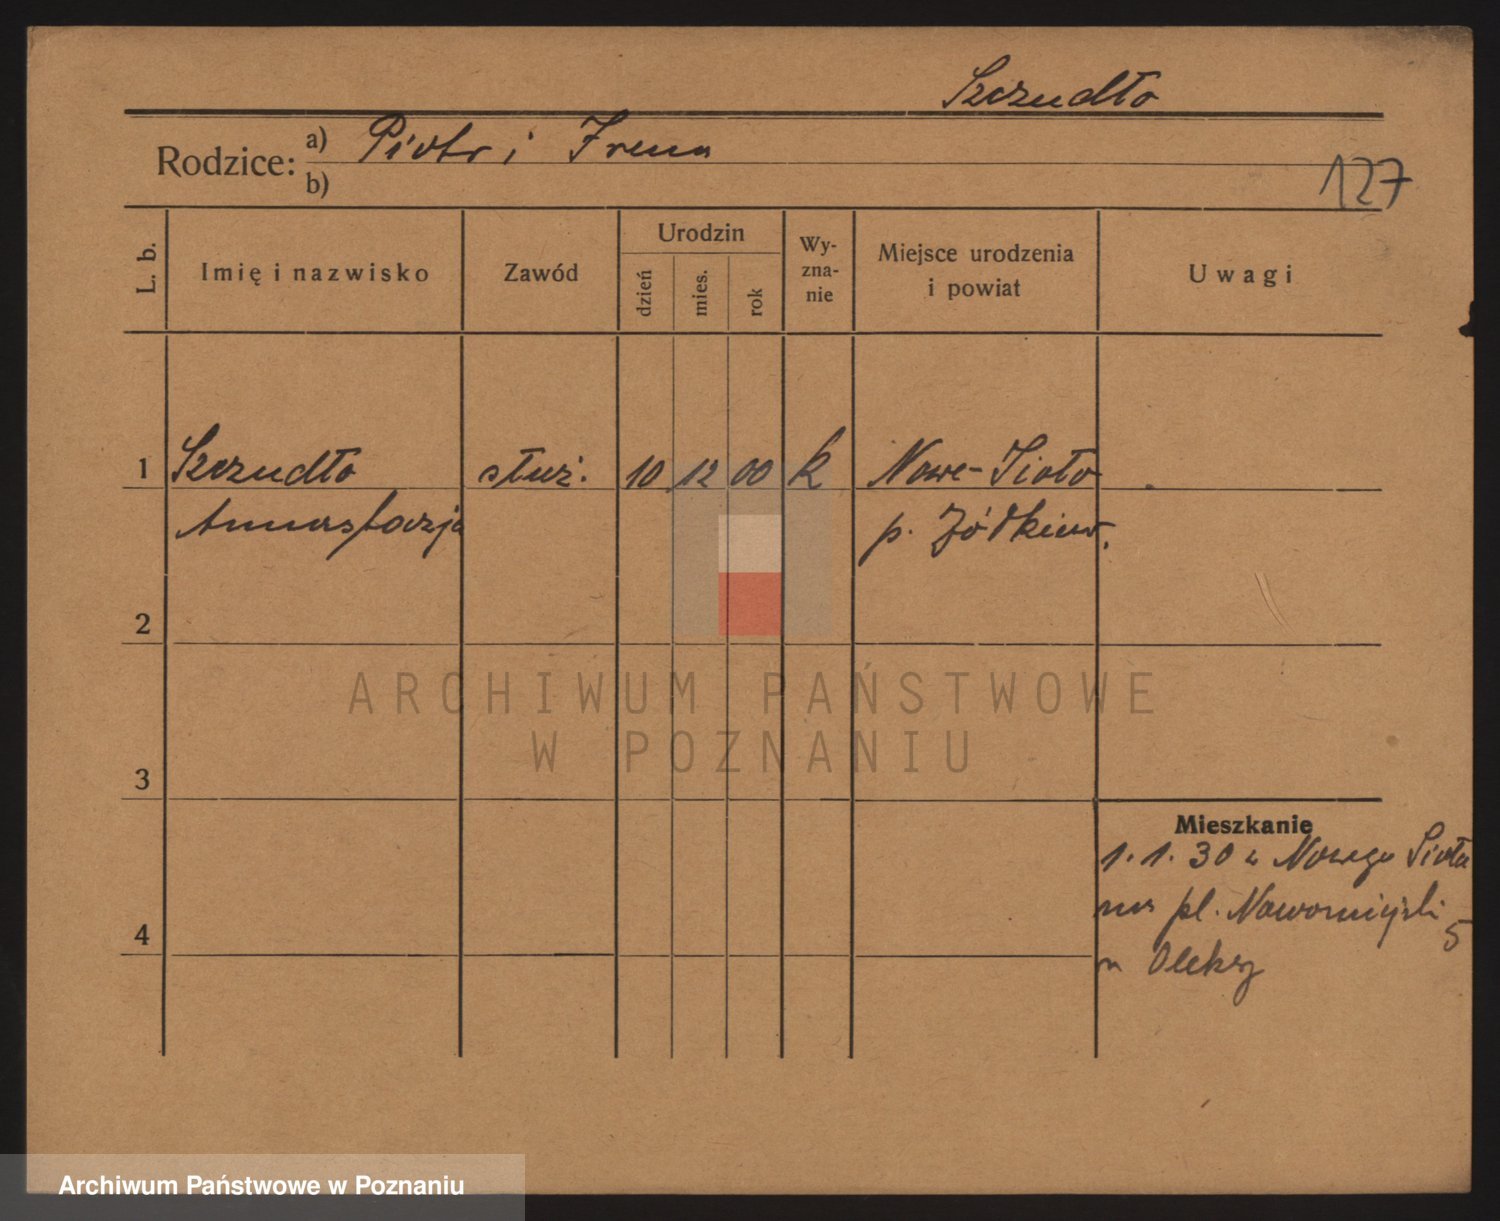 Szczudło
Rodzice: a) Piotr i Irena
b)
127
L. b.
Imię i nazwisko
Zawód
Urodzin
dzień
mies.
rok
Wy-
zna-
nie
Miejsce urodzenia
i powiat
Uwagi
1 Szczudło służ. 10 12 00 k Nowe-Sioło
Anastazja p. Żółkiew.
2
ARCHIWUM PAŃSTWOWE
W POZNANIU
3
Mieszkanie
1. 1. 30 z Nowego Sioła
na pl. Nowomiejski 5
4
Archiwum Państwowe w Poznaniu